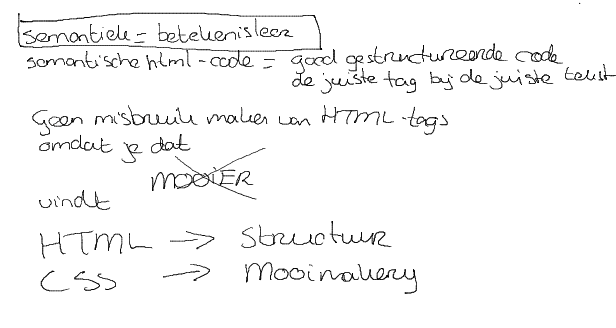 semantiek = betekenisleer
semantische html-code = goed gestructureerde code
de juiste tag bij de juiste tekst
Geen misbruik maken van HTML-tags
omdat je dat
MOOIER
vindt
HTML -> Structuur
CSS -> Mooimakery